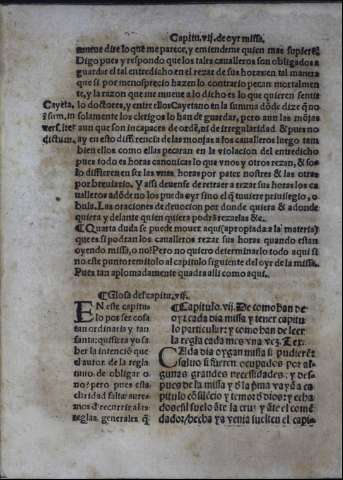 Capitu. vij. de oyr missa.
mente dire lo que me parece, y emiendeme quien mas supiere.
Digo pues y respondo que los tales cavalleros son obligados a
guardar el tal entredicho en el rezar de sus horas: en tal manera
que si por menosprecio hazen lo contrario pecan mortalmen
te, y la razon que me mueve a lo dicho es lo que quieren sentir
los doctores, y entre ellos Cayetano en la summa dõde dize q̃ no
solamente los clerigos lo han de guardar, pero aun las mõjas
aun que son incapaces de ordẽ, ni de irregularidad. & pues no
ay en esto differencia de las monjas a los cavalleros luego tam
bien ellos como ellas pecaran en la violacion del entredicho
pues todo es horas canonicas lo que vnos y otros rezan, & so-
lo differencen ser las vnas horas por pater nostres & las otras
por breuiario. Y assi deuense de retraer a rezar sus horas los ca
ualleros adõde no los pueda oyr sino el q̃ tuuiere priuilegio, o
bula. Las oraciones de deuocion por donde quiera & adonde
quiera y delante quien quiera podrã rezarlas &c.
¶ Quarta duda se puede mouer aqui (apropiada a la materia)
que es si podran los caualleros rezar sus horas quando estan
oyendo missa, o no? Pero no quiero determinarlo todo aqui si
no este punto remitolo al capitulo siguiente del oyr de la missa.
Pues tan aplomadamente quadra alli como aqui.
Cayeta.
in sum. in
ver. inter
dictum.
¶ Glosa del capitu. vij.
EN este capitu
lo por ser cosa
tan ordinaria y tan
santa: quisiera yo sa
ber la intencion que
el autor de la regla
tuuo, de obligar o
no? pero pues esta
claridad falta: aure-
mos d̃ recurrir a las
reglas generales q̃
¶ Capitulo. vij. De como han de
oyr cada dia missa y tener capitu
lo particular: y como han de leer
la regla cada mes vna vez. Tex.
CAda dia oygan missa si pudierẽ
saluo si fueren ocupados por al-
gunas grandes necessidades, y des-
pues de la missa y d̃ la p̃ma vayã a ca-
pitulo cõ silẽcio y temor d̃ dios: y echa
dos en el suelo ãte la cruz y ãte el comẽ
dador/hecha ya venia suelten el capi-